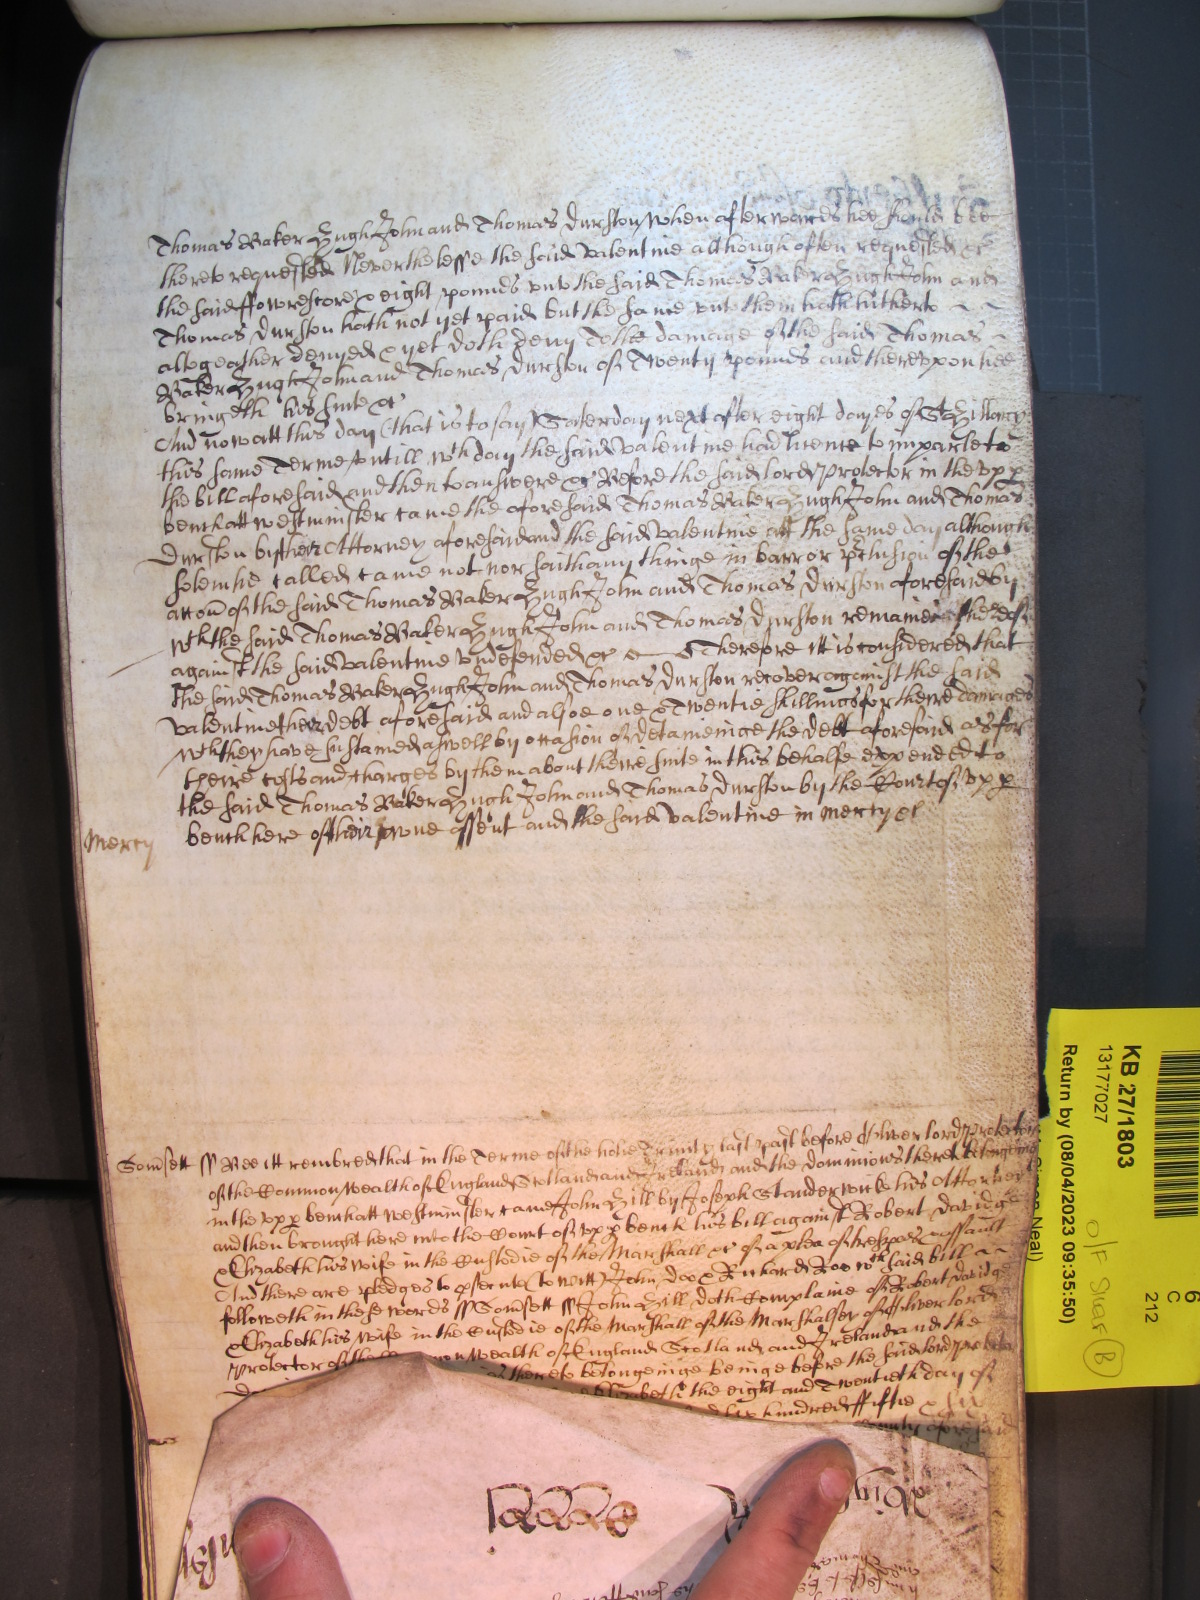 Thomas Baker Hugh John and Thomas Durston when afterwards hee should bee
thereto requested Neverthelesse the said Valentine although often requested &c
the said ffowrescore & eight pounds unto the said Thomas Baker Hugh John and
Thomas Durston hath not yet paid but the same unto them hath hitherto
altogeather denyed & yet doth deny To the damage of the said Thomas
Baker Hugh John and Thomas Durston of Twenty pounds and thereupon hee
bringeth his suite &c
And now att this day (that is to say) Saterday next after eight dayes of St Hillary
this same Terme untill wch day the said Valentine had licence to imparle to
the bill aforesaid and then to answere &c Before the said lord Protector in the upp
bench att Westminster came the aforesaid Thomas Baker Hugh John and Thomas
Durston by their Attorney aforesaid and the said Valentine att the same day although
solemlie called came not nor saith any thinge in barr or pclusion of the
accon of the said Thomas Baker Hugh John and Thomas Durston aforesaid by
wch the said Thomas Baker Hugh John and Thomas Durston remaine
against the said Valentine undefended &c Therefore itt is considered that
the said Thomas Baker Hugh John and Thomas Durston recover against the said
Valentine their debt aforesaid and alsoe one & Twentie shillings for theire damages
wch they have sustained aswell by occasion of detaineinge the debt aforesaid as for
theire costs and charges by them about theire suite in this behalfe expended to
the said Thomas Baker Hugh John and Thomas Durston by the Court of upp
Mercy bench here of their owne assent and the said Valentine in mercy &c
Somsett ss Bee itt remembred that in the Terme of the holie Trinity last past before Oliver lord Protector
of the Common Wealth of England Scotland and Ireland and the dominions thereto belonging
in the upp bench att Westminster came John Hill by Joseph Standerwicke his Attorney
and then brought here into the Court of upp bench his bill against Robert Davidge
& Elizabeth his wife in the Custodie of the Marshall &c of a plea of trespas & assault
And there are pledges to psecute (to witt) John Doo & Richard Roo wch said bill
followeth in these words ss Somsett ss John Hill doth Complaine of Robert Davidge
& Elizabeth his wife in the Custodie of the Marshall of the Marshalsey of Oliver lord
Protector of the Common Wealth of England Scotland and Ireland and the
thereto belongeinge beinge before the said lord Protector
Elizabeth the eight and Twentieth day of
six hundred ffiftie & six
County aforesaid
KB 27/1803
13177027
Return by (08/04/2023 09:35:50)
Simon Neal)
6
C
212
O/F
B